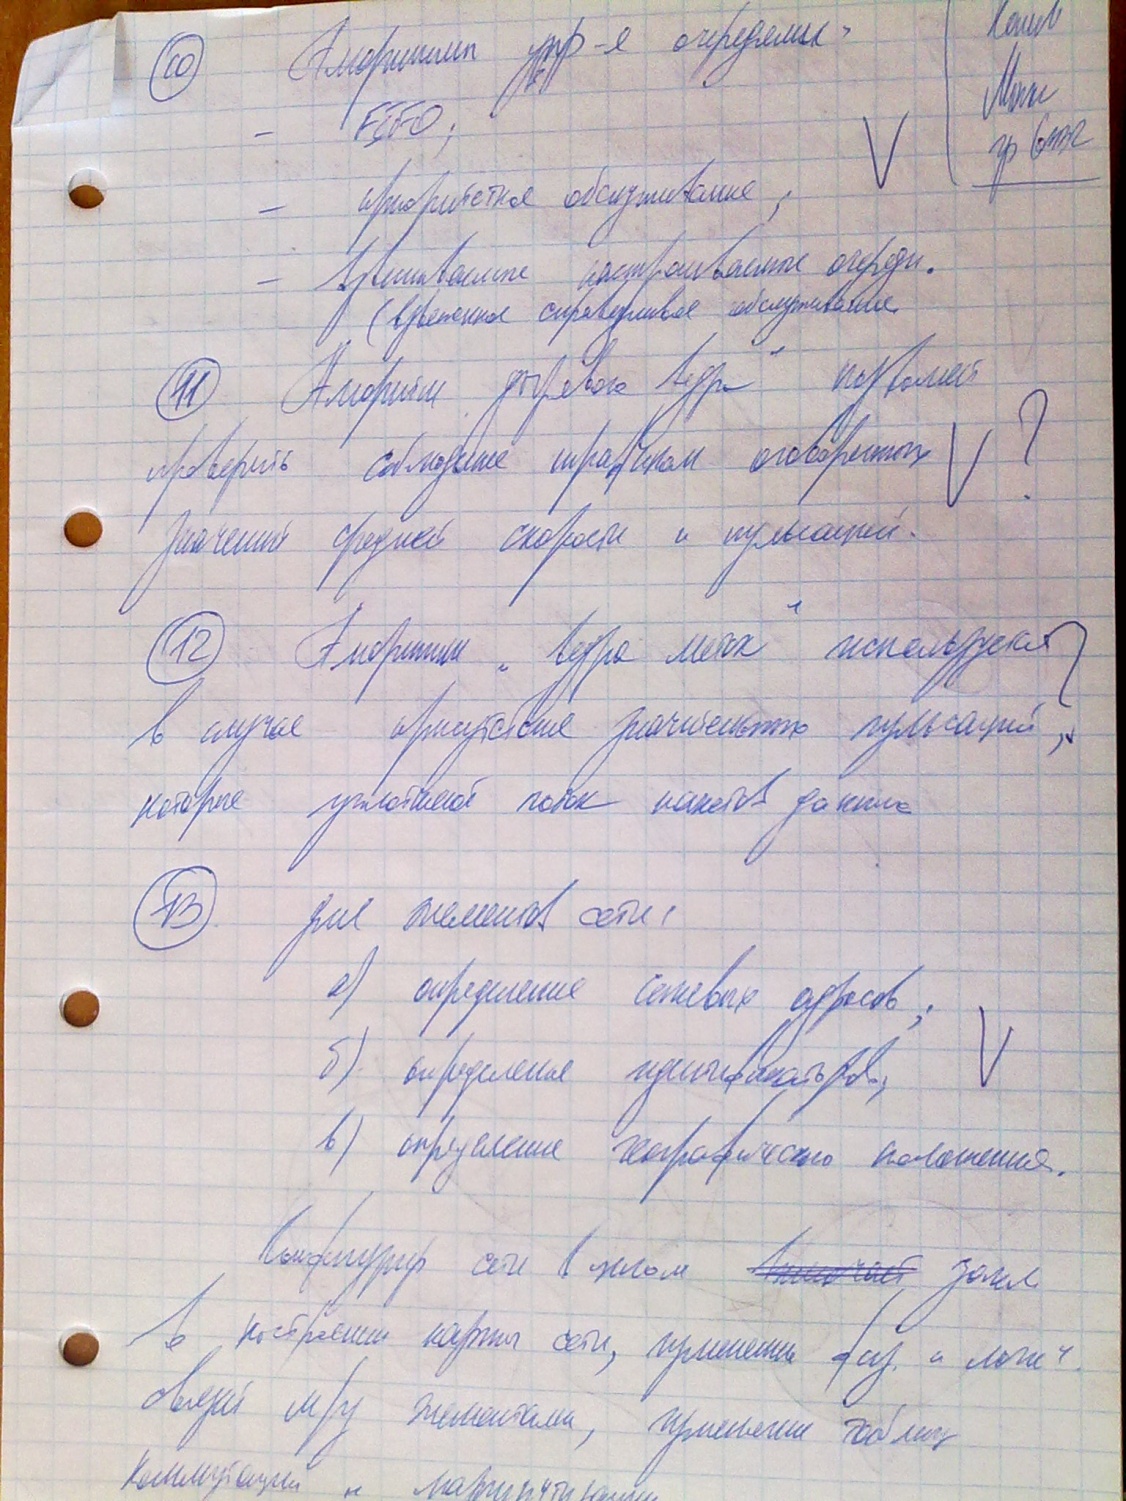 10 Алгоритмы упр-я очередями:
- FIFO;
- приоритетное обслуживание;
- взвешиваемые настраиваемые очереди.
(взвешенное справедливое обслуживание
11 Алгоритм „дырявого ведра" позволяет
проверить соблюдение трафиком оговоренных ?
значений средней скорости и пульсаций.
12 Алгоритм „ведра меток" используется
в случае присутствия значительных пульсаций,
которые уплотняют поток пакетов данных
13. Для элементов сети:
а) определение сетевых адресов;
б) определение идентификаторов;
в) определение географического положения.
Конфигурир сети в целом закл
в построении карты сети, изменении физ. и логич.
связей м/у элементами, изменение таблиц
коммутации и маршрутизации